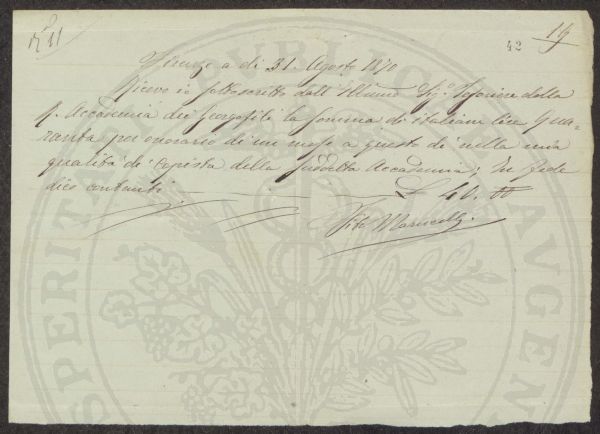 N° 11
42
19
Firenze a di 31. Agosto 1870
Ricevo io sottoscritto dall' Illmo Sigr. Tesoriere della
R. Accademia dei Georgofili la somma di italiane lire Qua-
ranta per onorario di un mese a questo dì nella mia
qualità di Copista della suddetta Accademia; In fede
dico contanti L 40. 00
Vito
PROSPERITATI PUBLICAE AUGENDAE